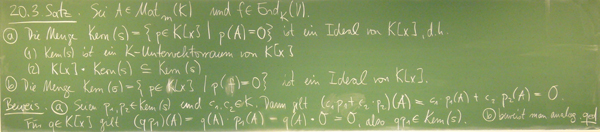 20.3 Satz. Sei A ∈ Mat_m(K) und f ∈ End_K(V).
(a) Die Menge Kern(s) = {p ∈ K[x] | p(A) = 0} ist ein Ideal von K[x], d.h.
(1) Kern(s) ist ein K-Untervektorraum von K[x]
(2) K[x] · Kern(s) ⊆ Kern(s)
(b) Die Menge Kern(s) = {p ∈ K[x] | p(f) = 0} ist ein Ideal von K[x].
Beweis: (a) Seien p₁, p₂ ∈ Kern(s) und c₁, c₂ ∈ K. Dann gilt (c₁p₁ + c₂·p₂)(A) = c₁ p₁(A) + c₂ p₂(A) = 0.
Für q ∈ K[x] gilt (q p₁)(A) = q(A) · p₁(A) = q(A) · 0 = 0, also q p₁ ∈ Kern(s). (b) beweist man analog. qed